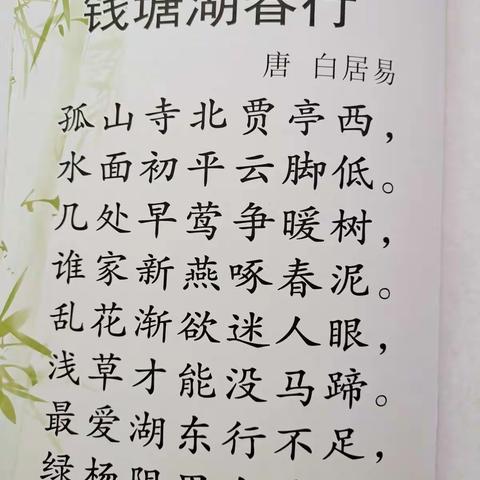 钱塘湖春行
唐 白居易
孤山寺北贾亭西，
水面初平云脚低。
几处早莺争暖树，
谁家新燕啄春泥。
乱花渐欲迷人眼，
浅草才能没马蹄。
最爱湖东行不足，
绿杨阴里